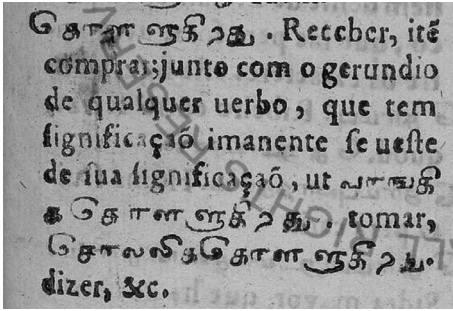 கொளளுகிறது. Receber, itē
comprar; junto com o gerundio
de qualquer uerbo, que tem
ſignificaçaõ imanente ſe ueſte
de ſua ſignificaçaõ, ut வாஙகி
ககொளளுகிறது. tomar,
சொலலிககொளளுகிறது.
dizer, &c.